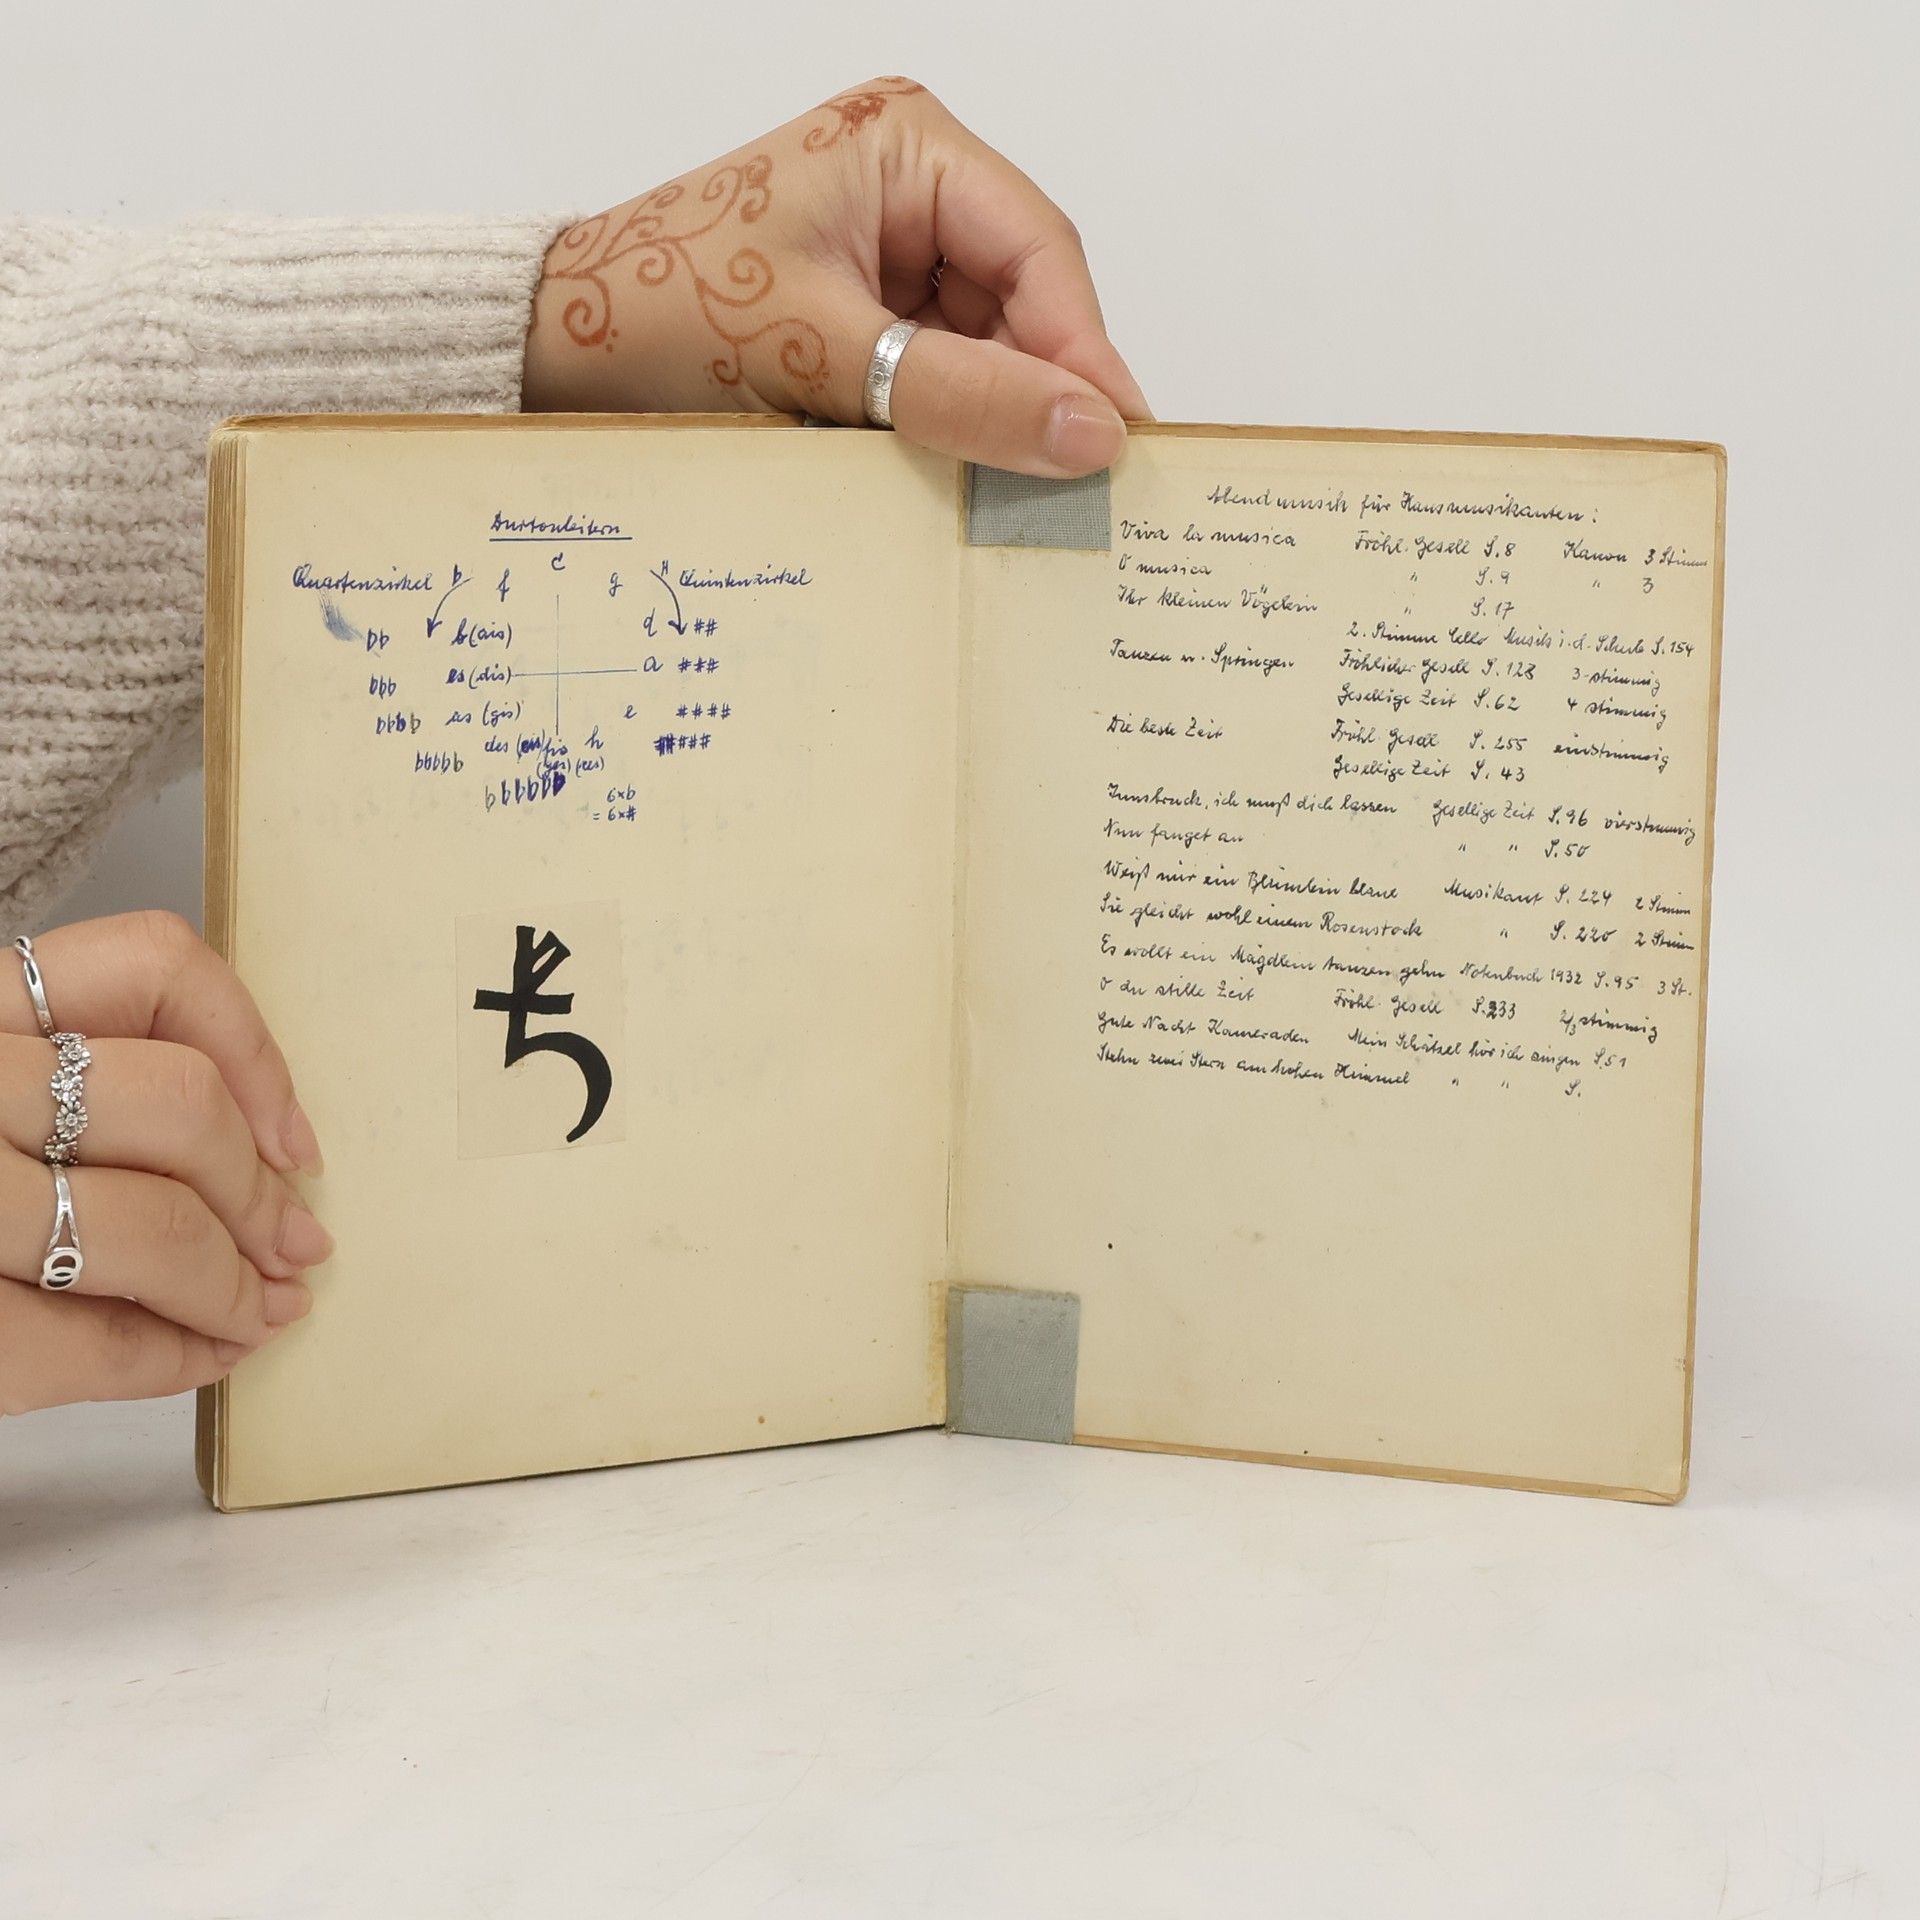 Durtonleitern
c
Quartenzirkel b f g # Quintenzirkel
bb b(ais) d ##
bbb es(dis) a ###
bbbb as (gis) e ####
bbbbb des (cis) fis h #####
(ges) (ces)
bbbbbb 6xb
= 6x#
Abendmusik für Hausmusikanten:
Viva la musica Fröhl. Gesell S. 8 Kanon 3 Stimm
O musica " S. 9 " 3
Ihr kleinen Vögelein " S. 17
2. Stimme Cello Musik i. d. Schule S. 154
Tanzen u. Springen Fröhlicher Gesell S. 128 3-stimmig
Gesellige Zeit S. 62 4 stimmig
Die beste Zeit Fröhl. Gesell S. 255 einstimmig
Gesellige Zeit S. 43
Innsbruck, ich muß dich lassen Gesellige Zeit S. 96 vierstimmig
Nun fanget an " " S. 50
Weiß mir ein Blümlein blaue Musikant S. 224 2 Stimm
Sie gleicht wohl einem Rosenstock " S. 220 2 Stimm
Es wollt ein Mägdlein tanzen gehn Notenbuch 1932 S. 95 3 St.
O du stille Zeit Fröhl. Gesell S. 233 2/3 stimmig
Gute Nacht Kameraden Mein Schätzel hör ich singen S. 51
Stehn zwei Stern am hohen Himmel " " S.